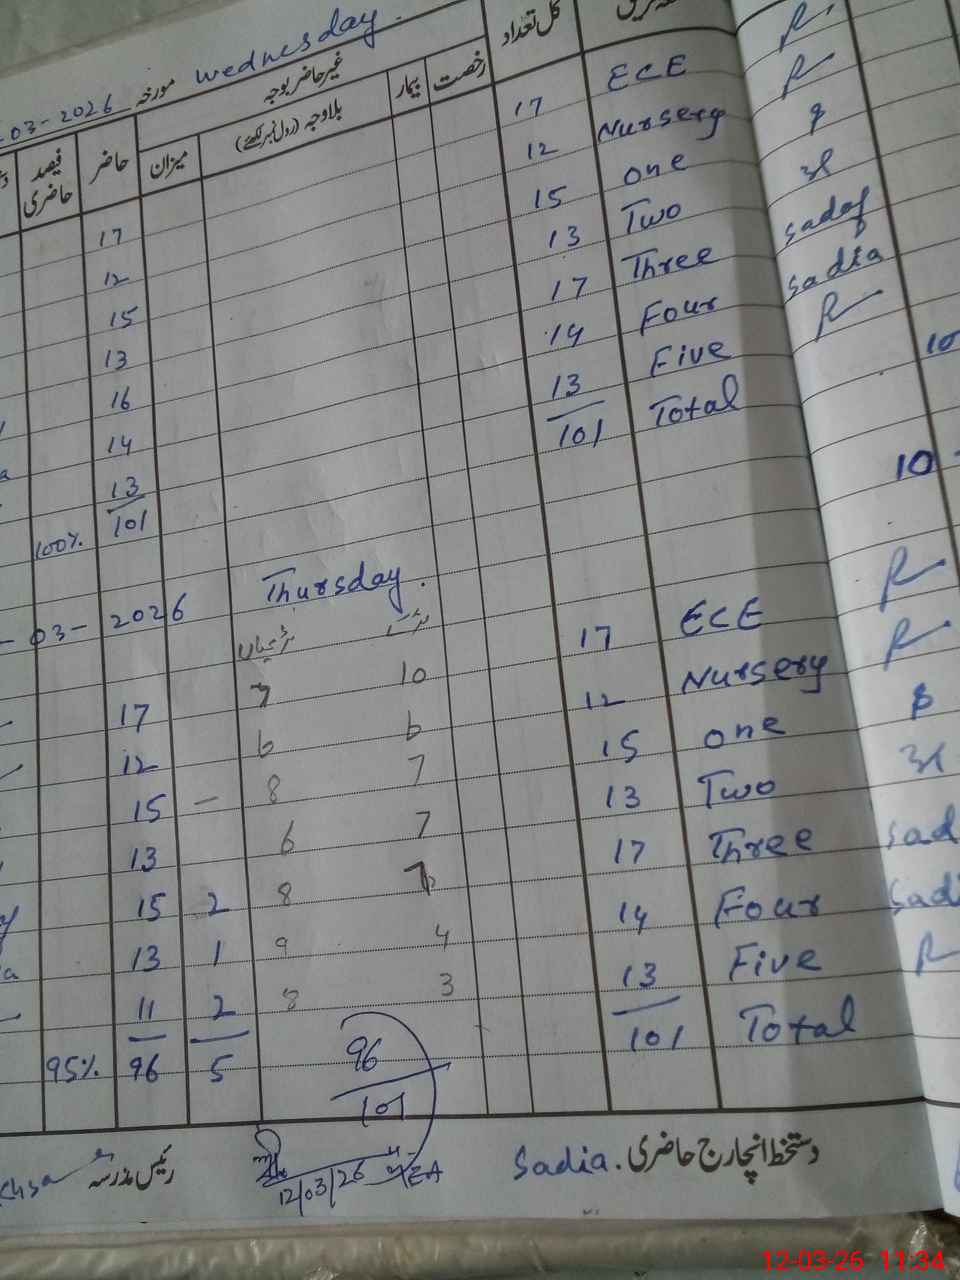 03-2026 مورخہ Wednesday.
فیصد حاضری حاضر میزان غیر حاضر بوجہ بلاوجہ (رول نمبر لکھئے) بیمار رخصت کل تعداد
17 17 ECE
12 12 Nursery
15 15 one
13 13 Two sadaf
16 17 Three sadia
14 14 Four
13 13 Five
100% 101 101 Total
10
10
-03-2026 Thursday.
17 7 10 17 ECE
12 6 6 12 Nursery
15 - 8 7 15 one
13 6 7 13 Two
15 2 8 7 17 Three sad
13 1 9 4 14 Four Sadi
11 2 8 3 13 Five
95% 96 5 96/101 101 Total
رئیس مدرسہ 12/03/26 Sadia. دستخط انچارج حاضری
12-03-26 11:34